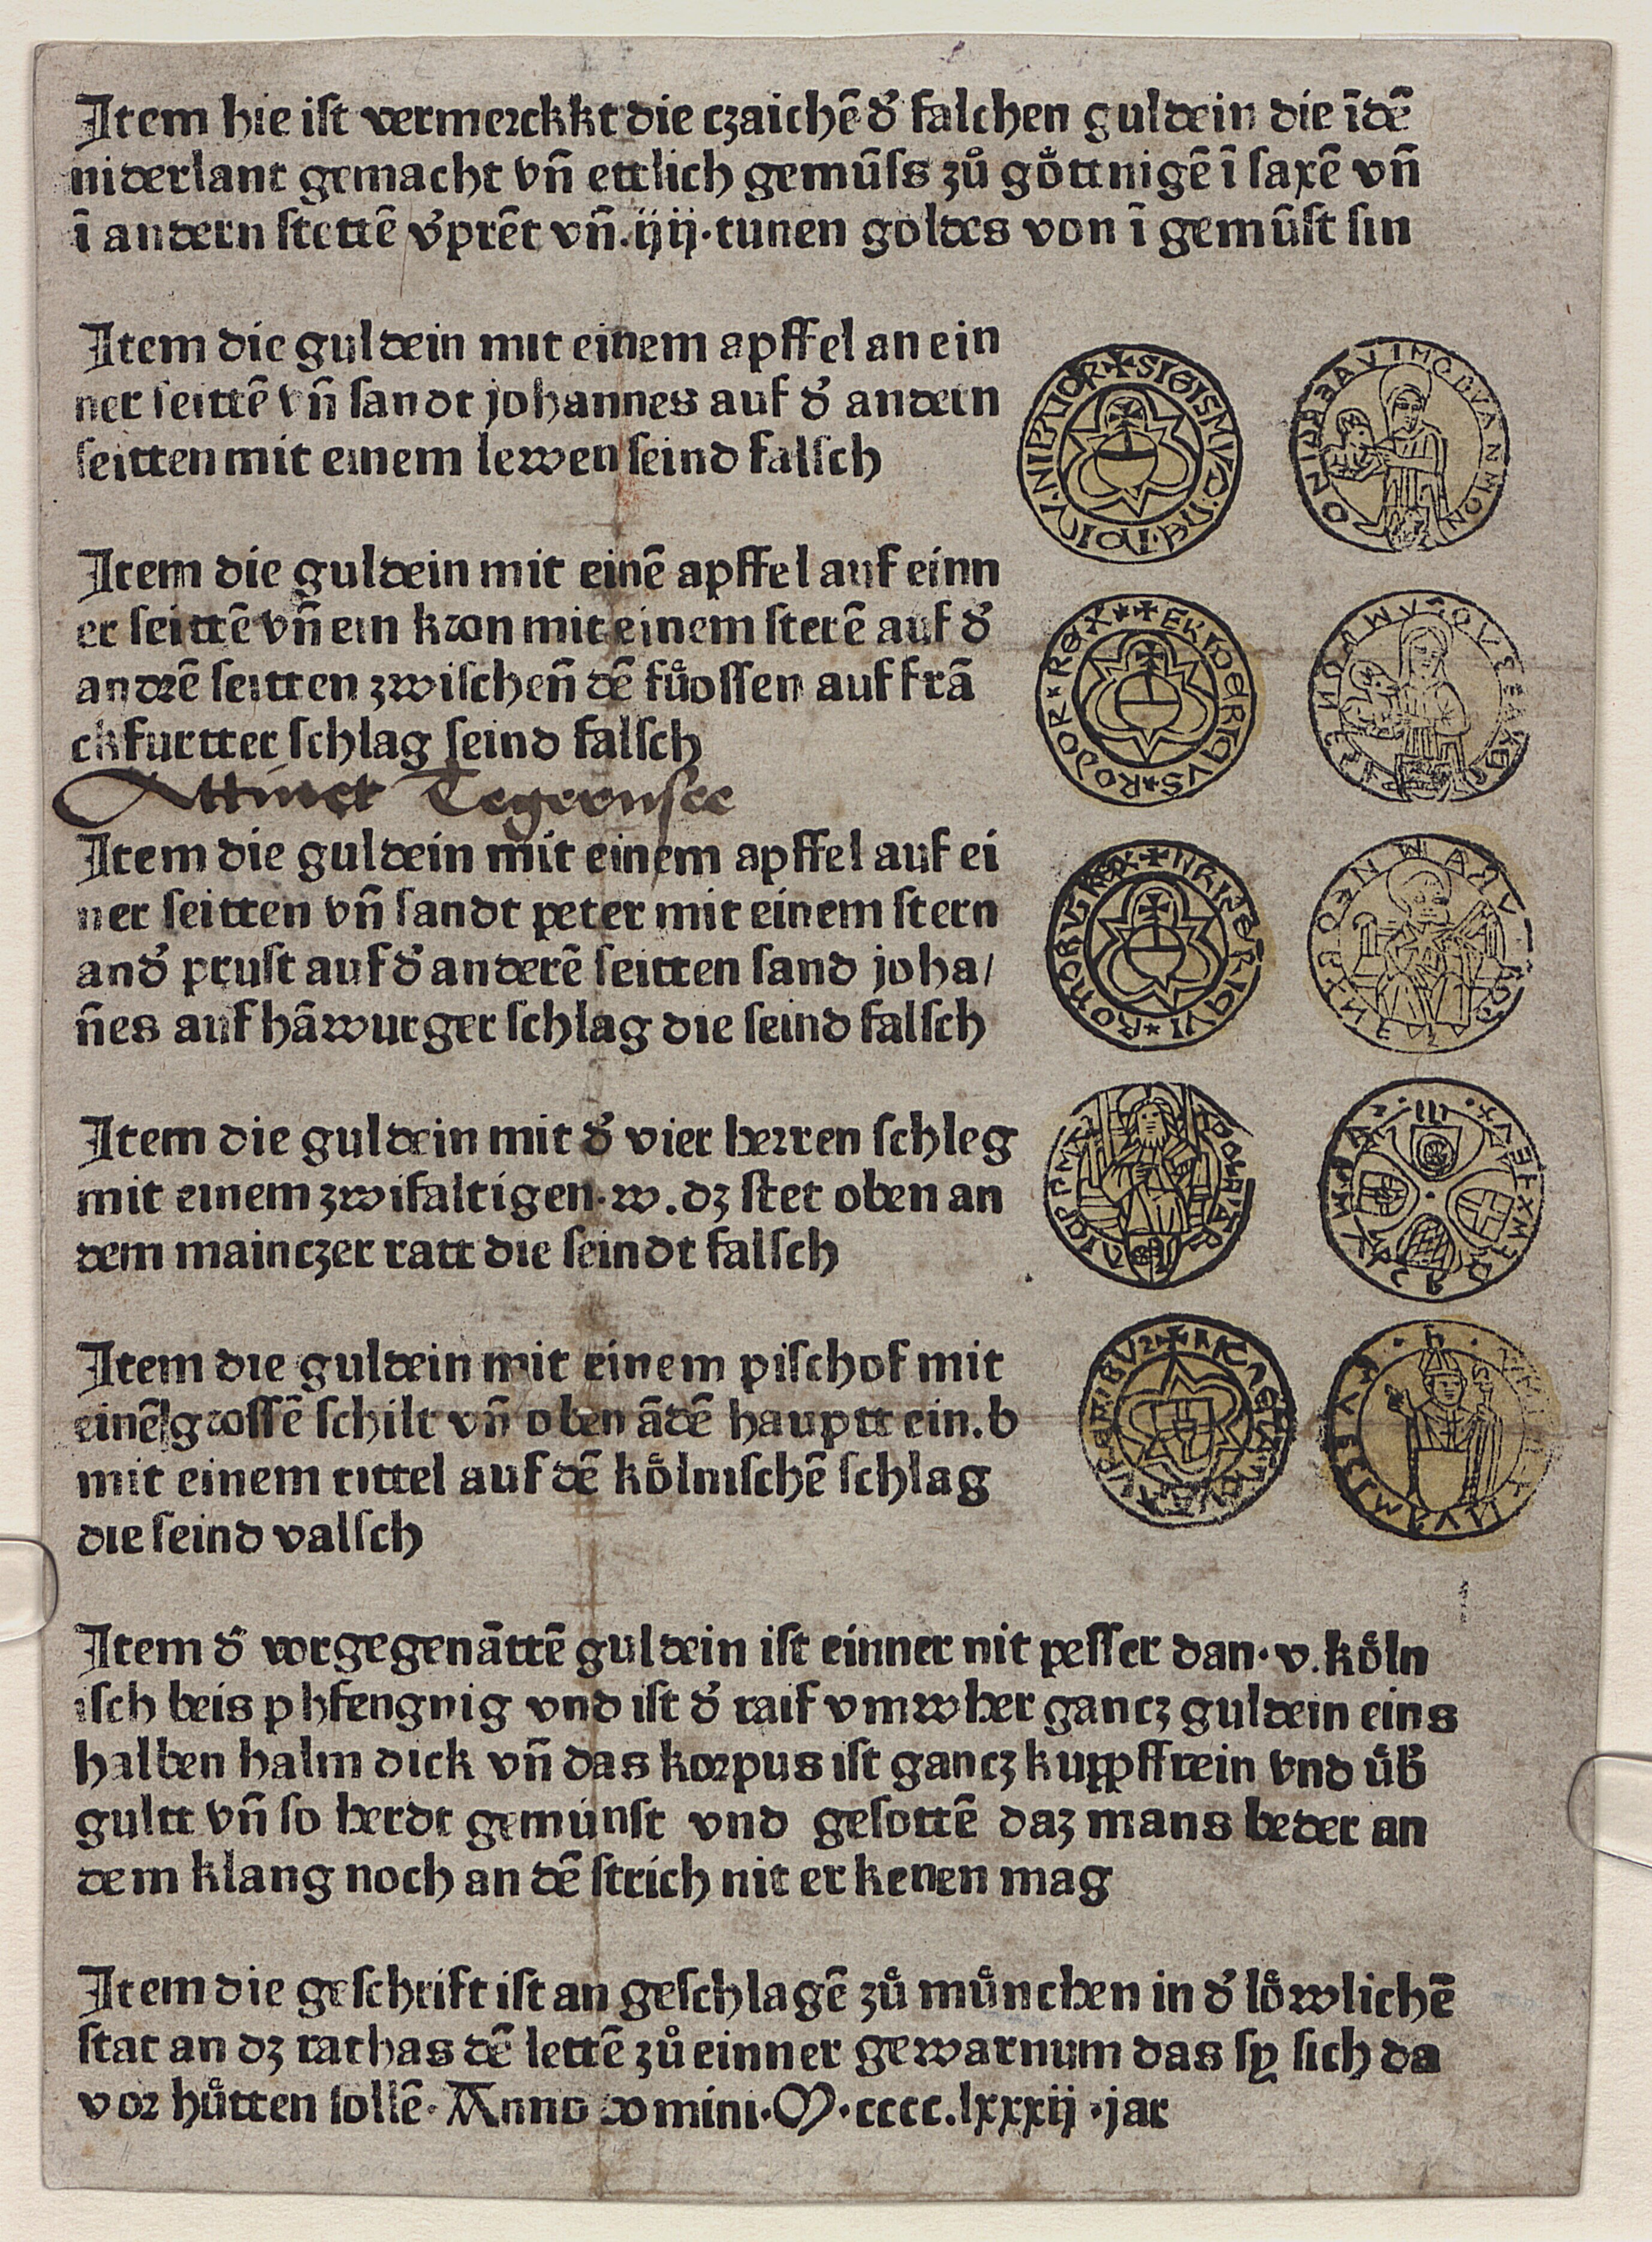 Item hie iſt vermerckkt die czaichē d̉ falchen guldein die ī dē
niderlant gemacht vn̄ ettlich gemūſs zů gǒttnigē ī ſaxē vn̄
ī andern ſtettē v̉prēt vn̄.ijij.tunen goldes von ī gemūſt ſin
Item die guldein mit einem apffel an ein
ner ſeittē vn̄ ſandt johannes auf d̉ andern
ſeitten mit einem lewen ſeind falſch
Item die guldein mit einē apffel auf einn
er ſeittē vn̄ ein kron mit einem ſterē auf d̉
andrē ſeitten zwiſchen̄ dē fůoſſen auf frā
ckfurtter ſchlag ſeind falſch
Attinet Tegernsee
Item die guldein mit einem apffel auf ei
ner ſeitten vn̄ ſandt peter mit einem ſtern
and̉ pruſt auf d̉ anderē ſeitten ſand joha/
n̄es auf hāwurger ſchlag die ſeind falſch
Item die guldein mit d̉ vier herren ſchleg
mit einem zwifaltigen.w.dz ſtet oben an
dem mainczer ratt die ſeindt falſch
Item die guldein mit einem piſchof mit
einē groſſē ſchilt vn̄ oben ādē hauptt ein.b
mit einem tittel auf dē kǒlniſchē ſchlag
die ſeind valſch
Item d̉ vorgegenāttē guldein iſt einner nit peſſer dan.v.kǒln
iſch beis phfengnig vnd iſt d̉ raif vmwher gancz guldein eins
halben halm dick vn̄ das korpus iſt gancz kuppffrein vnd ǔb̉
gultt vn̄ ſo herdt gemúnſt vnd geſottē daz mans beder an
dem klang noch an dē ſtrich nit erkenen mag
Item die geſchrift iſt an geſchlagē zů můnchen in d̉ lǒwlichē
ſtat an dz rathas dē lettē zů einner gewarnum das ſy ſich da
vor hůtten ſollē. Anno domini.M.cccc.lxxxij.jar